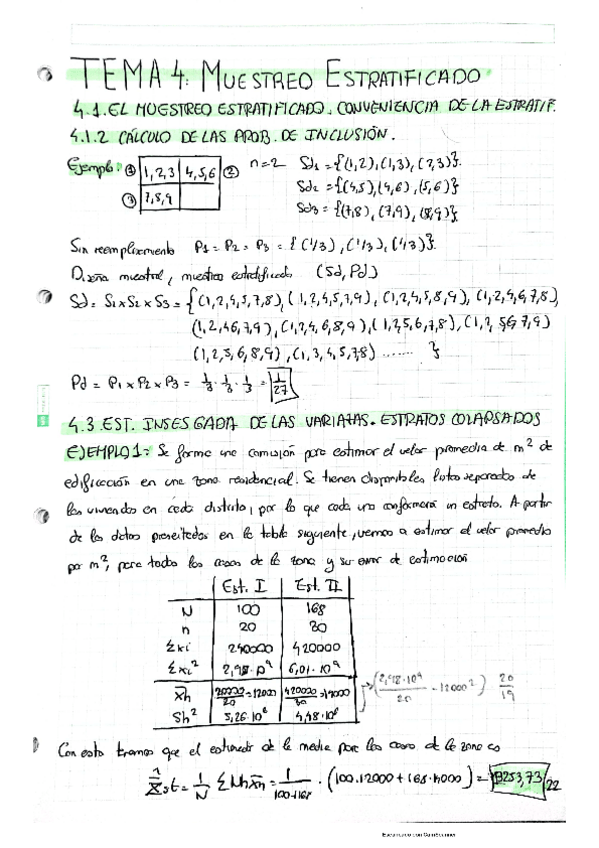 TEMA 4: MUESTREO ESTRATIFICADO
4.1. EL MUESTREO ESTRATIFICADO. CONVENIENCIA DE LA ESTRATIF.
4.1.2 CÁLCULO DE LAS PROB. DE INCLUSIÓN.
Ejemplo: ① 1,2,3 4,5,6 ② n=2 Sd₁ = {(1,2),(1,3),(2,3)}.
Sd₂ = {(4,5),(4,6),(5,6)}
③ 7,8,9 Sd₃ = {(7,8),(7,9),(8,9)}.
Sin reemplazamiento P1 = P2 = P3 = {(1/3),(1/3),(1/3)}.
Diseño muestral, muestreo estratificado (Sd, Pd)
Sd = S1xS2xS3 = {(1,2,4,5,7,8),(1,2,4,5,7,9),(1,2,4,5,8,9),(1,2,4,6,7,8),
(1,2,4,6,7,9),(1,2,4,6,8,9),(1,2,5,6,7,8),(1,2,5,6,7,9)
(1,2,5,6,8,9),(1,3,4,5,7,8) ....... }
Pd = P1 x P2 x P3 = 1/3 · 1/3 · 1/3 = 1/27
4.3. EST. INSESGADA DE LAS VARIANZAS. ESTRATOS COLAPSADOS
EJEMPLO 1: Se forma una comisión para estimar el valor promedio de m² de
edificación en una zona residencial. Se tienen disponibles listas separadas de
las viviendas en cada distrito, por lo que cada uno conformará un estrato. A partir
de los datos presentados en la tabla siguiente, vamos a estimar el valor promedio
por m², para todas las casas de la zona y su error de estimación
Est. I Est. II
N 100 168
n 20 30
Σxi 240000 420000
Σxi² 2,98·10⁹ 6,01·10⁹
x̄h 240000/20 = 12000 420000/30 = 14000 → (2,98·10⁹/20 - 12000²) 20/19
Sh² 5,26·10⁶ 4,48·10⁶
Con esto tenemos que el estimador de la media para las casas de la zona es
x̄st = 1/N ΣNh x̄h = 1/(100+168) · (100·12000 + 168·14000) = 13253,73
22
Escaneado con CamScanner